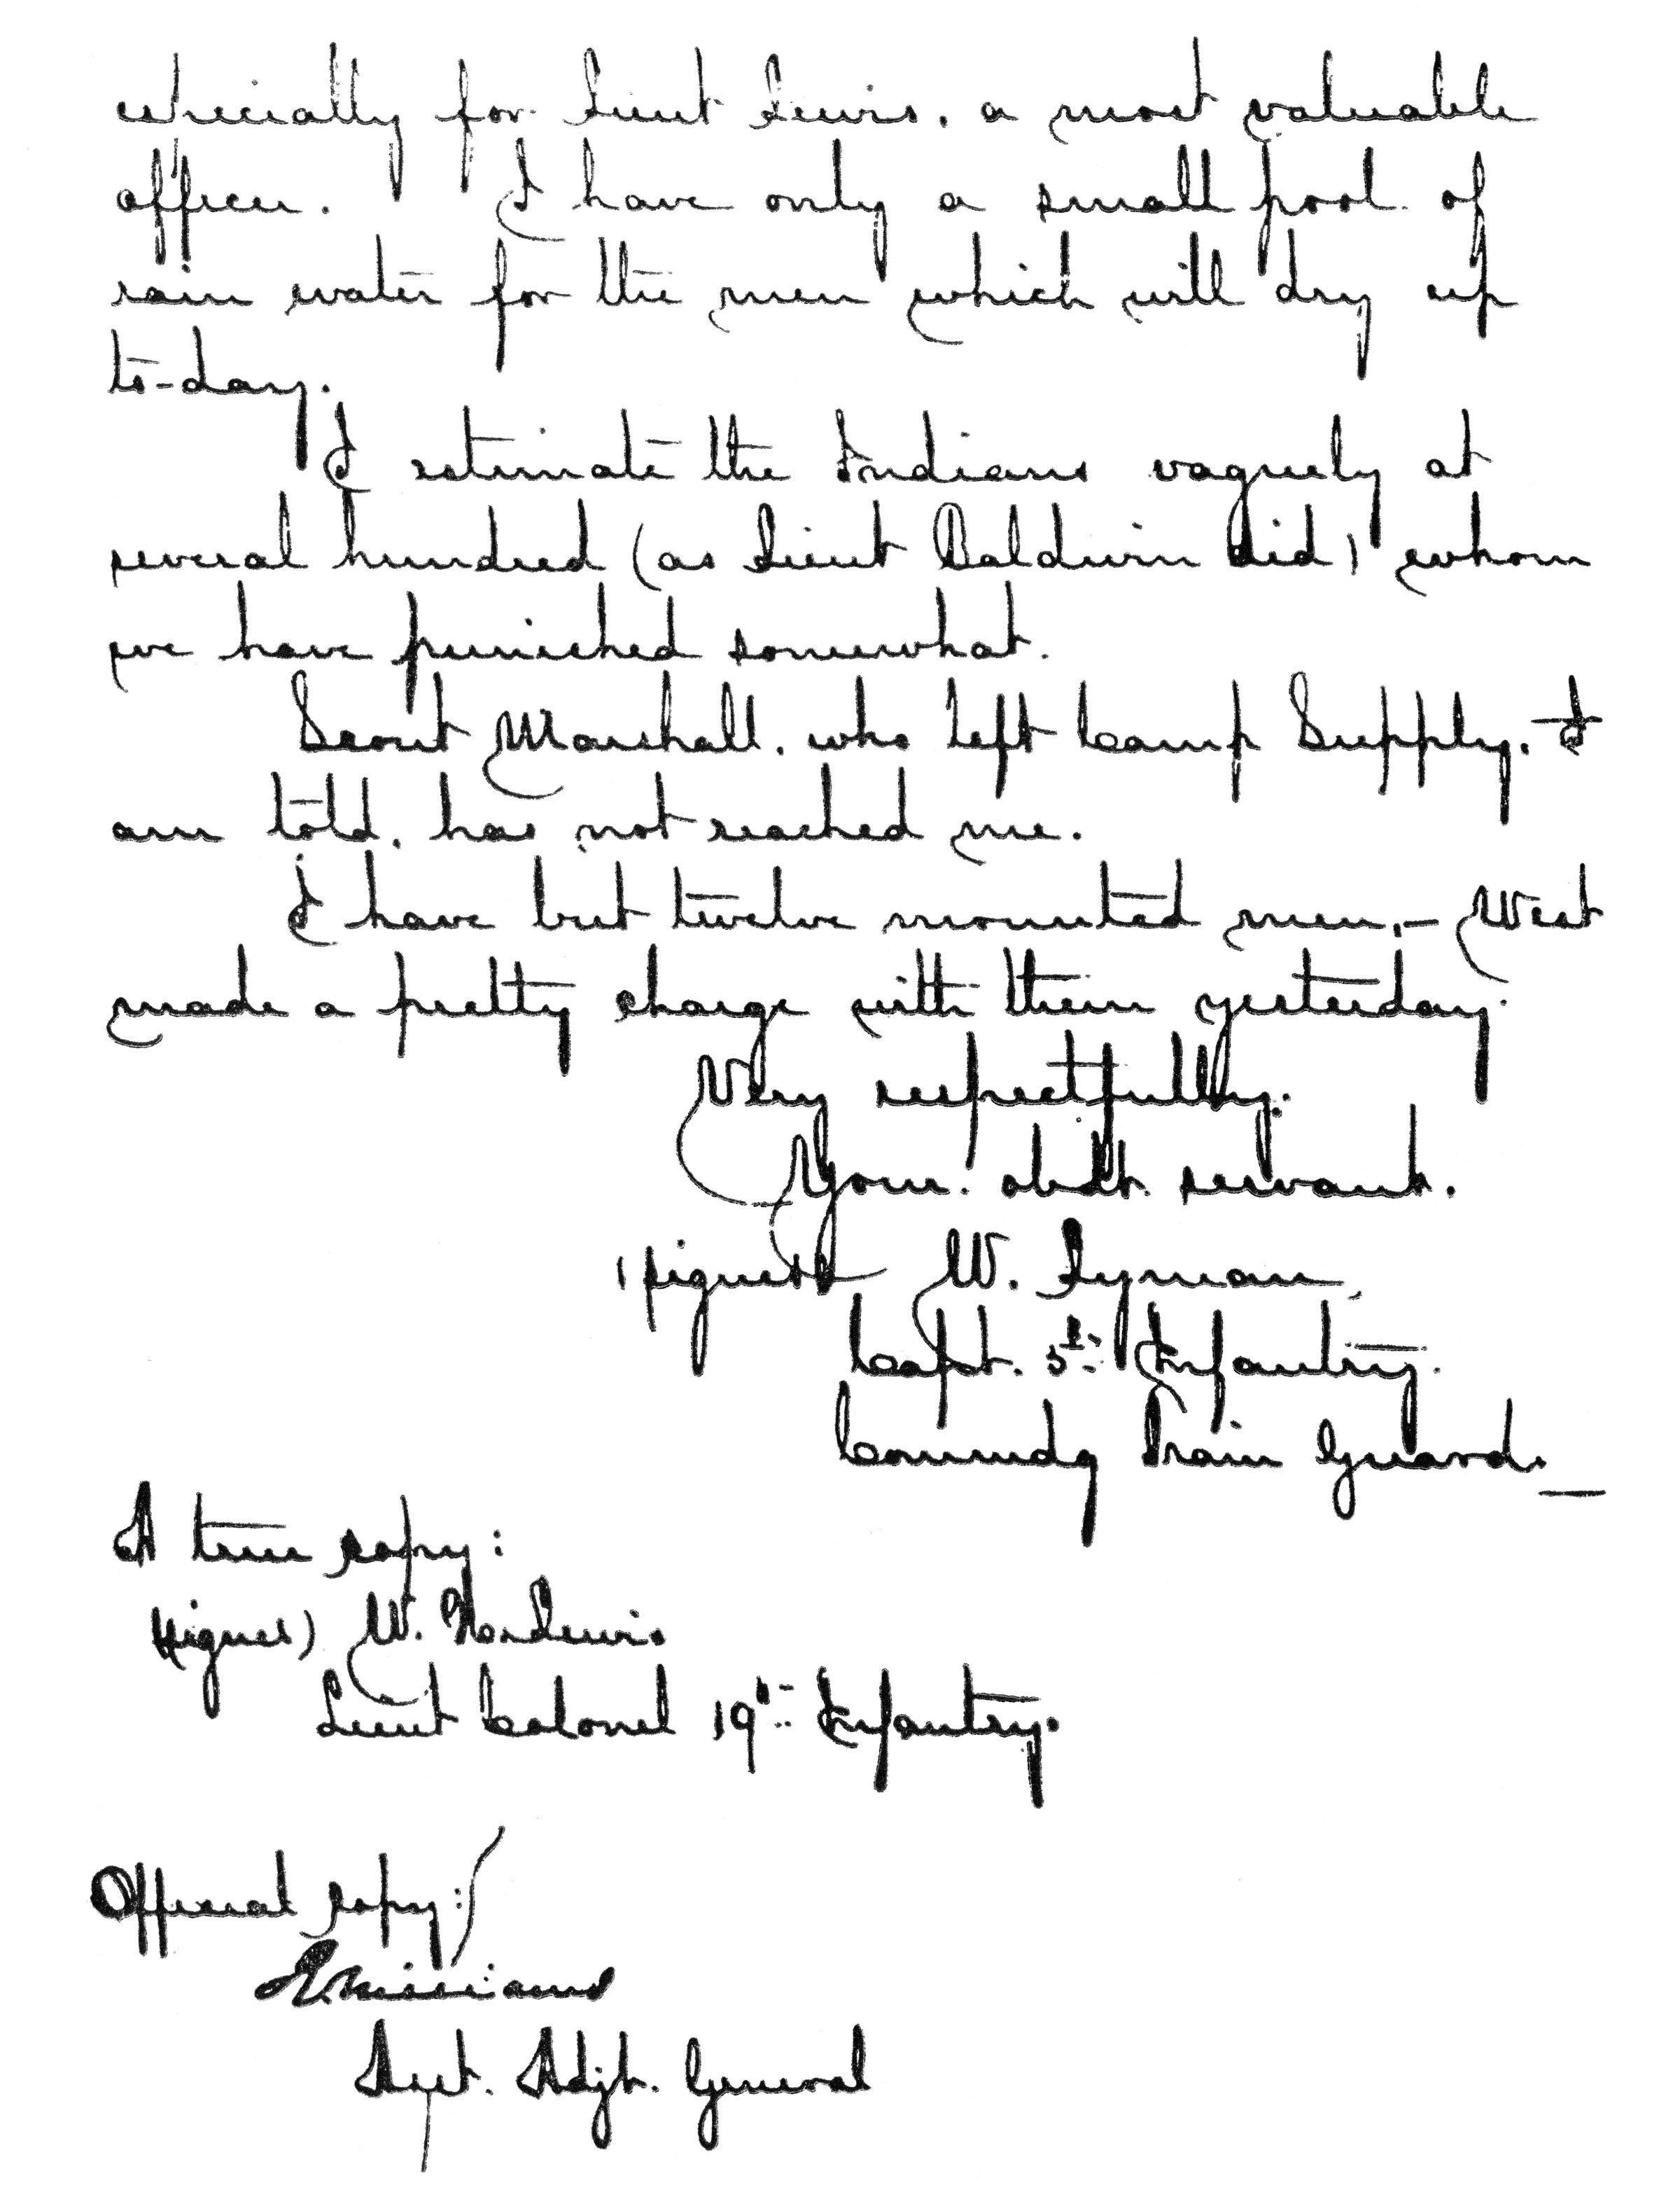 especially for Lieut Lewis, a most valuable
officer. I have only a small pool of
rain water for the men which will dry up
to-day.
I estimate the Indians vaguely at
several hundred (as Lieut Baldwin did) whom
we have punished somewhat.
Scout Marshall, who left Camp Supply, I
am told, has not reached me.
I have but twelve mounted men,— West
made a pretty charge with them yesterday.
Very respectfully,
Your obdt. servant.
(signed) W. Lyman,
Capt. 5th Infantry.
Commdg Train Guard.—
A true copy:
(signed) W. H. Lewis
Lieut Colonel 19th Infantry.
Official copy:
R. Williams
Asst. Adjt. General